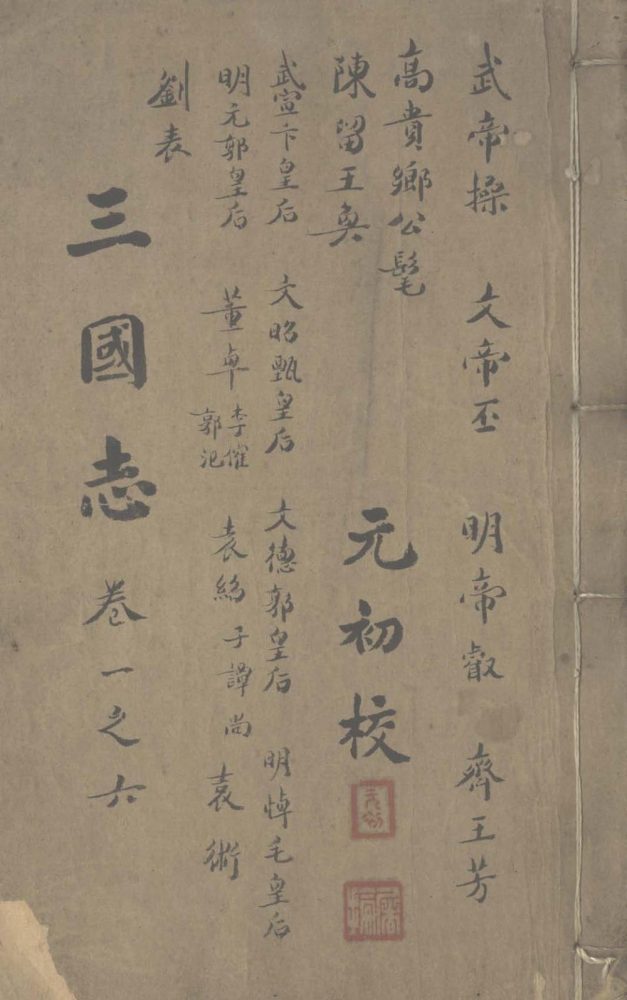 武帝操 文帝丕 明帝叡 齊王芳
高貴鄉公髦
陳留王奐
元初校
元初
武宣卞皇后 文昭甄皇后 文德郭皇后 明悼毛皇后
明元郭皇后 董卓 李傕 郭汜 袁紹 子譚 尚 袁術
劉表
三國志 卷一之六